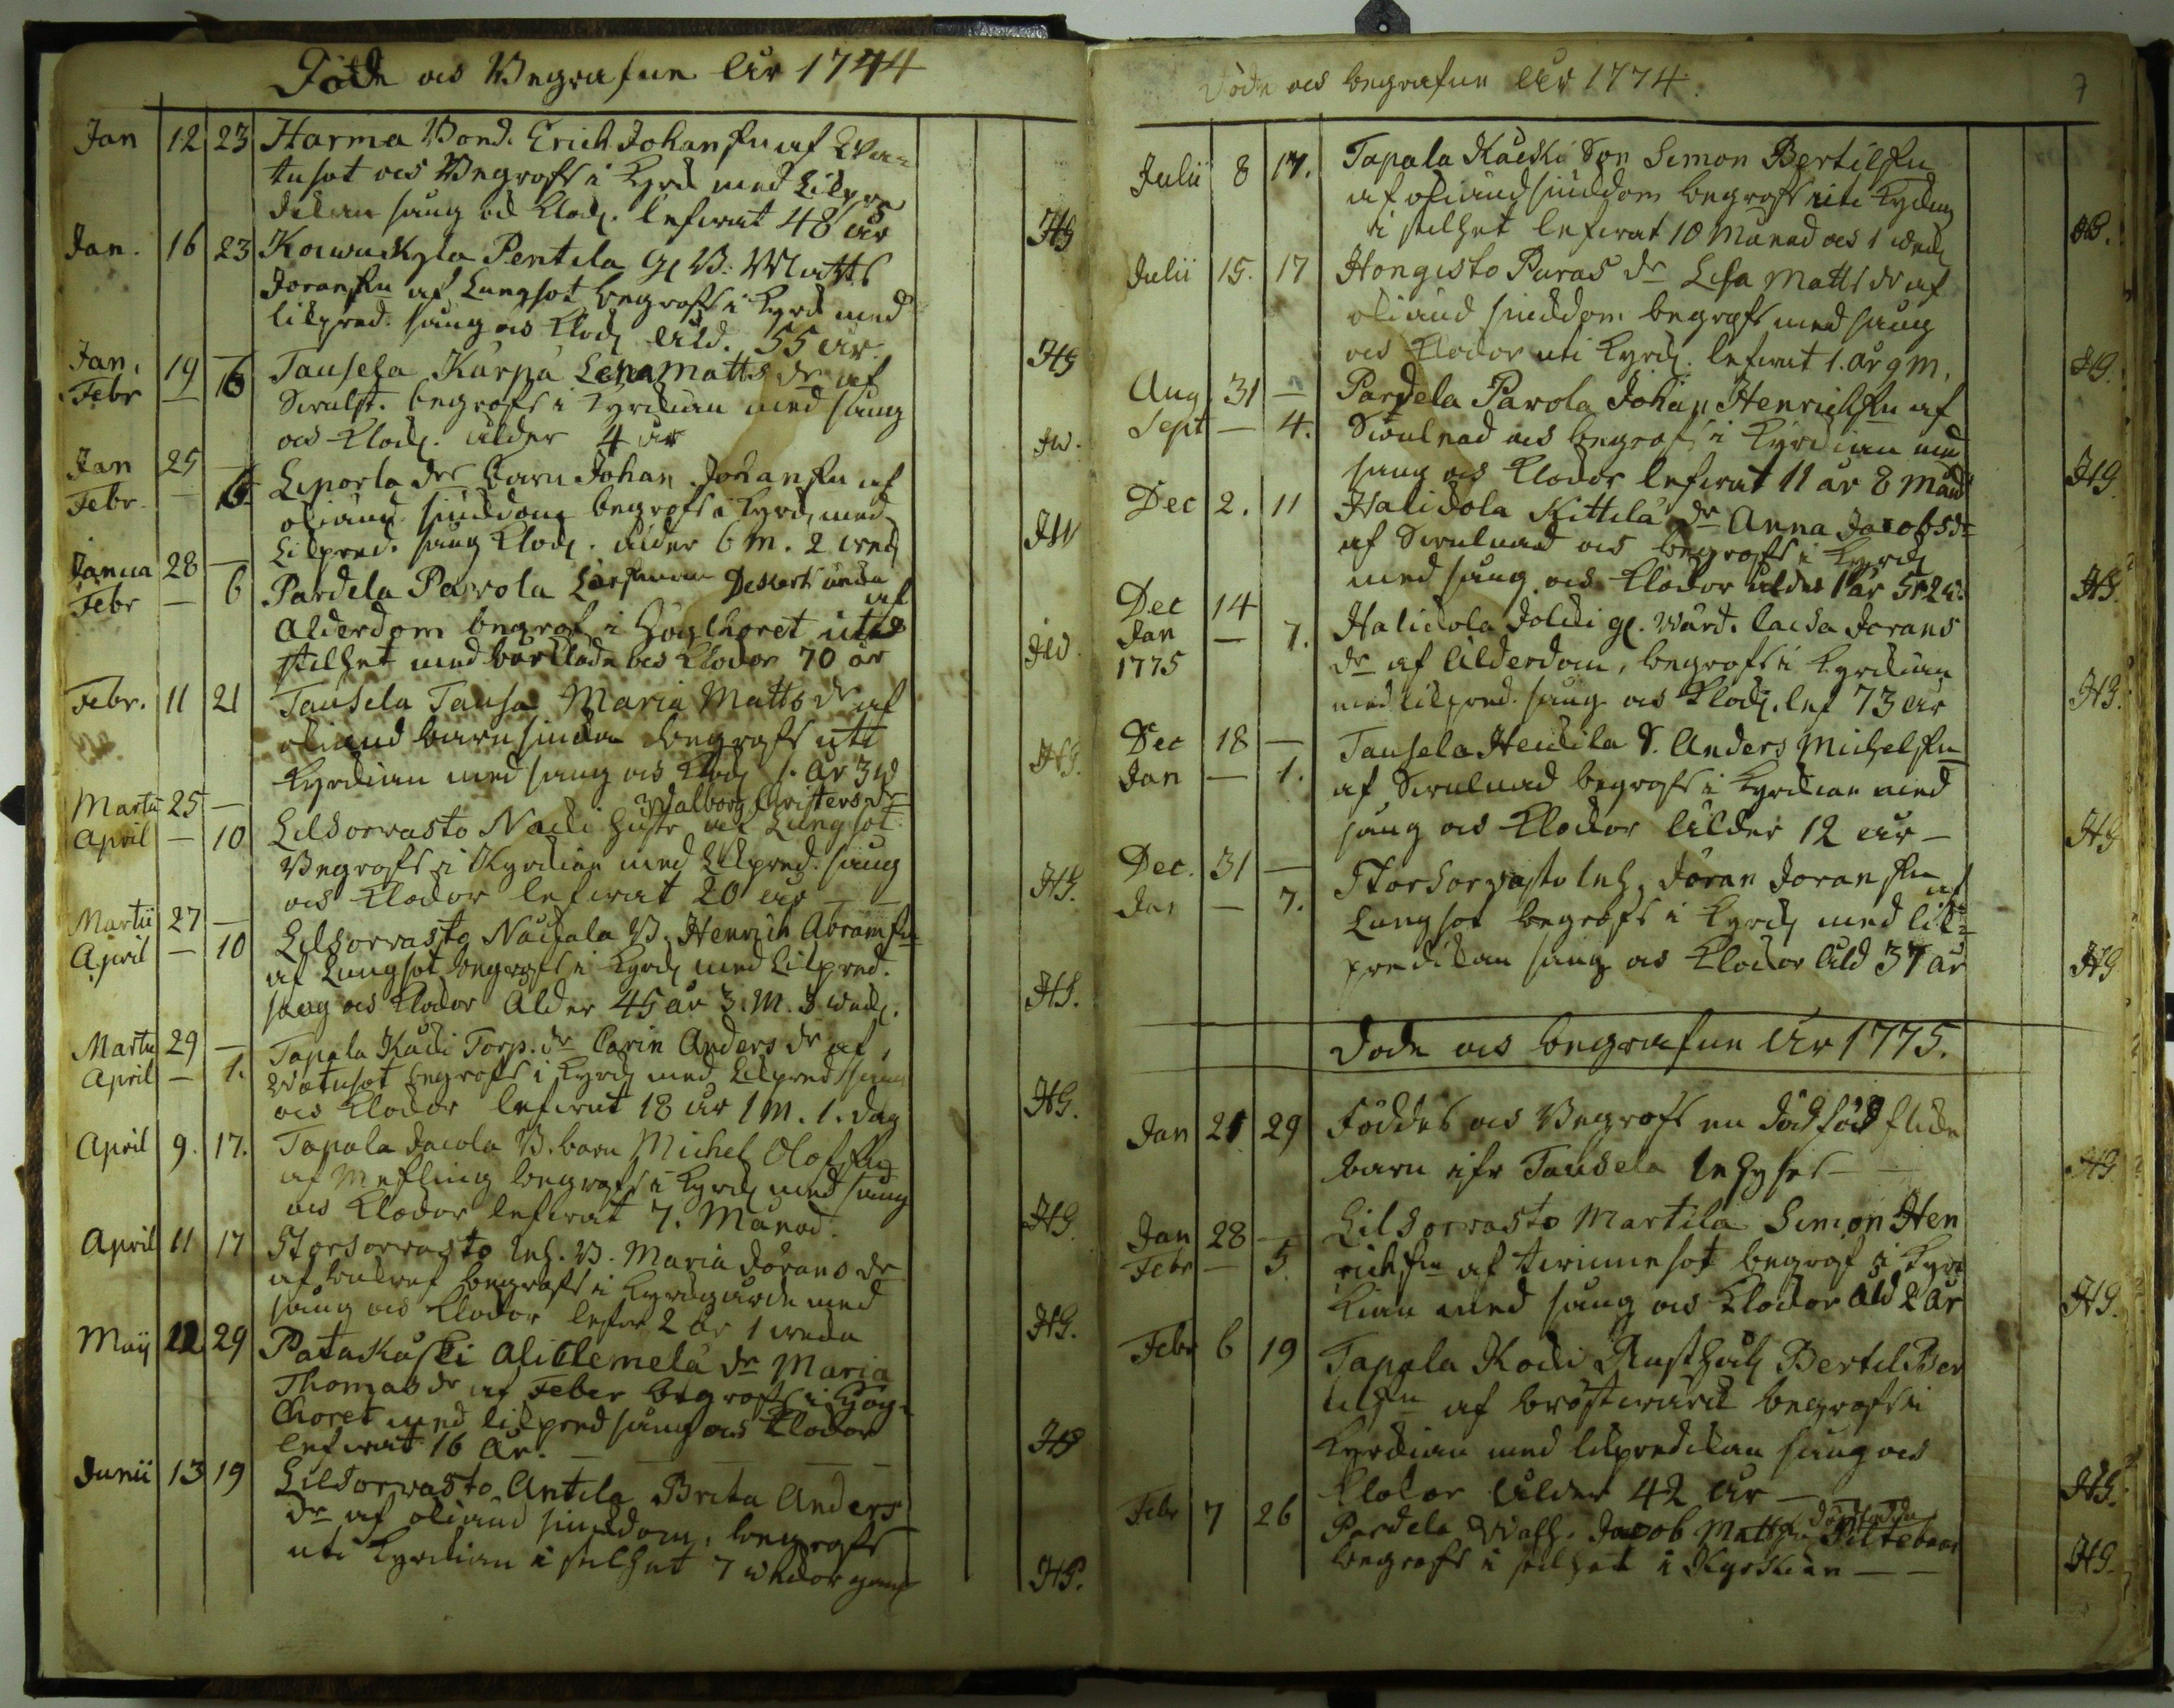 Döde och Begrafne År 1774
Jan 12 23 Harma Bond. Erich Johansson af Wa-
tusot och Begrofs i Kyrk med Likpre
dikan sång och Klock. lefwat 48 år HG
Jan. 16 23 Kouwukyla Pentila gl B. Matts
Joransson af Lungsot begrofs i Kyrk med
likpred. sång och Klock åld. 55 år HG
Jan. 19 —
Febr — 6 Tausela Karpa Lena Matts dr af
Swulst. begrofs i Kyrkian med sång
och Klock. ålder 4 år JW.
Jan 25 —
Febr. — 6 Leporla dr barn Johan Johansson af
okiänd siukdom begrofs i Kyrk, med
Likpred. sång Klock. ålder 6 M. 2 weck JW
Janua 28 —
Febr — 6 Pardela Parola enka af
Alderdom begrof i Höglhoret uti
stilhet med bårkläde och Klockor 70 år JW.
Febr. 11 21 Tausela Tausa Maria Matts dr af
okiänd barnsiuka begrofs uti
Kyrkian med sång och Klock 1. År 3 W HG.
Martii 25 —
April — 10 Lilsorwasto Nacki hustr Walborg Christersdr af Lungsot
Begrofs i Kyrkian med Likpred. sång
och Klockor lefwat 20 år — — HG.
Martii 27 —
April — 10 Lilsorwasto Nackala B. Henrich Abramsson
af Lungsot begrofs i Kyrk med Likpred.
sång och Klockor Alder 45 år 3. M. 3 weck. HG.
Martii 29 —
April — 1. Tapala Kacki Torp. dr Carin Anders dr af
Watusot begrofs i Kyrk med Likpred sång
och Klockor lefwat 18 år 1 M. 1. dag HG.
April 9. 17. Tapala Jacola B. barn Michel Olofsson
af Messling begrofs i Kyrk med sång
och Klockor lefwat 7. Månad. HG.
April 11 17 Storsorwasto Inh. B. Maria Jörans dr
af begrofs i Kyrkogården med
sång och Klockor lefw 2 år 1 wecka HG.
Maij 22 29 Patakaski Aliclemelä dr Maria
Thomas dr af Feber begrofs i Hög-
Choret med likpred sång och Klockor
lefwat 16 År. — HG
Junii 13 19 Lilsorwasto Antila Brita Anders
dr af okiänd siukdom, begrofs
uti Kyrkian i stilhet 7 weckor gam HG.
Döde och begrafne År 1774. 7
Julii 8 17. Tapala Kacki Son Simon Bertilsson
af okiänd siukdom begrofs uti Kyrkian
i stilhet lefwat 10 Månad och 1 weck HG.
Julii 15. 17 Hongisto Paras dr Lisa Matts dr af
okiänd siukdom begrofs med sång
och Klockor uti Kyrk. lefwat 1. år 9 M. HG.
Aug. 31 —
Sept — 4. Pardela Parola Johan Henrichsson af
Swulnad och begrofs i Kyrkian med
sång och Klockor lefwat 11 år 8 Månd HG
Dec 2. 11 Halickola Kittila dr Anna Jacobsdr
af Swulnad och begrofs i Kyrk
med sång och Klockor ålder 1 år HG.
Dec 14
Jan — 7.
1775
Halickola Jolcki gl. Wärd. Jorans
dr af Alderdom, begrofs i Kyrkian
med likpred. sång och Klock. lef 73 år HG.
Dec 18 —
Jan — 1. Tausela Heickila S. Anders Michelsson
af Swulnad begrofs i Kyrkian med
sång och Klockor ålder 12 år — HG
Dec. 31 —
Jan — 7. Storsorwasto Inh. Jöran Joransson af
Lungsot begrofs i Kyrk med lik-
predikan sång och Klockor åld 37 år HG
Döde och begrafne År 1775.
Jan 21 29 Föddes och Begrofs en dödföd flicke
barn ifr Tausela Inhyses — HG.
Jan 28 —
Febr — 5. Lilsorwasto Martila Simon Hen
richsson af twinnesot begrof i Kyr
kian med sång och Klockor Åld 2 År HG.
Febr 6 19 Tapala Kacki Rusthåll Bertil Ber
tilsson af bröstwärk begrofs i
Kyrkian med likpredikan sång och
Klockor ålder 42 år — HG.
Febr 7 26 Pardela Jacob Mattsson dödfödde Piltebarn
begrofs i stilhet i Kyrkian — — HG.